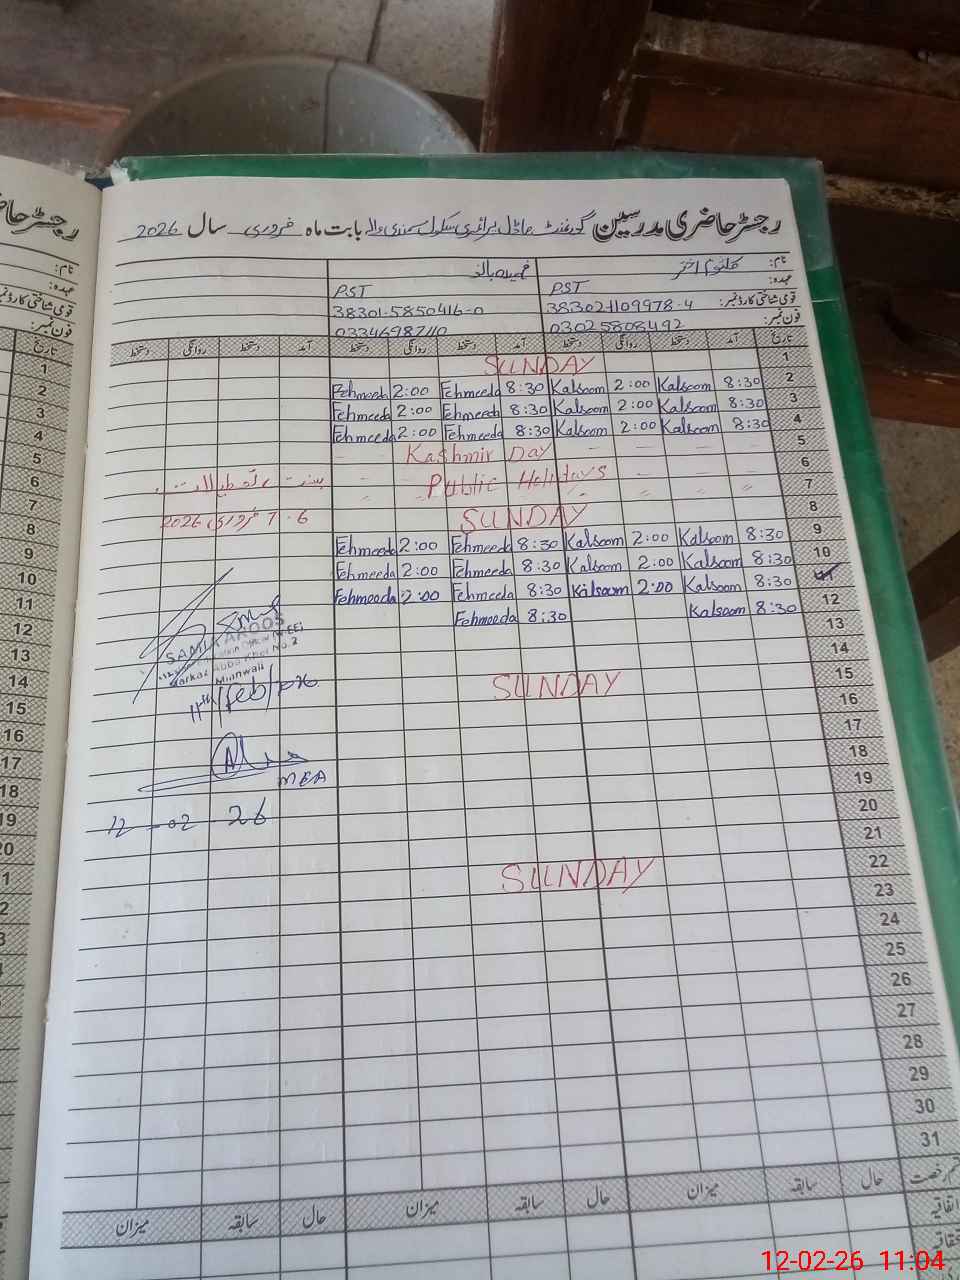 رجسٹر حاضری مدرسین گورنمنٹ ماڈل پرائمری سکول سمندی والے بابت ماہ فروری سال 2026
نام: کلثوم اختر فہمیدہ بانو
عہدہ: PST PST
قومی شناختی کارڈ نمبر: 383021109978-4 38301-5850416-0
فون نمبر: 03025808492 03346987110
تاریخ آمد دستخط روانگی دستخط آمد دستخط روانگی دستخط آمد دستخط روانگی دستخط
1 SUNDAY
2 8:30 Kalsoom 2:00 Kalsoom 8:30 Fehmeeda 2:00 Fehmeeda
3 8:30 Kalsoom 2:00 Kalsoom 8:30 Fehmeeda 2:00 Fehmeeda
4 8:30 Kalsoom 2:00 Kalsoom 8:30 Fehmeeda 2:00 Fehmeeda
5 Kashmir Day
6 Public Holidays بسنت تعطیلات
7 〃 〃 〃 〃
8 SUNDAY 6-7 فروری 2026
9 8:30 Kalsoom 2:00 Kalsoom 8:30 Fehmeeda 2:00 Fehmeeda
10 8:30 Kalsoom 2:00 Kalsoom 8:30 Fehmeeda 2:00 Fehmeeda
11 8:30 Kalsoom 2:00 Kalsoom 8:30 Fehmeeda 2:00 Fehmeeda
12 8:30 Kalsoom 8:30 Fehmeeda
13
14
15 SUNDAY
16
17
18
19
20
21
22 SUNDAY
23
24
25
26
27
28
29
30
31
Markaz Abba Khel No.2
Mianwali
11th/Feb/026
MEA
12-02-26
حال سابقہ میزان حال سابقہ میزان حال سابقہ میزان
اتفاقیہ
رجسٹر
نام:
عہدہ:
قومی شناختی کارڈ نمبر
فون نمبر:
تاریخ
1
2
3
4
5
6
7
8
9
10
11
12
13
14
15
16
17
18
19
12-02-26 11:04